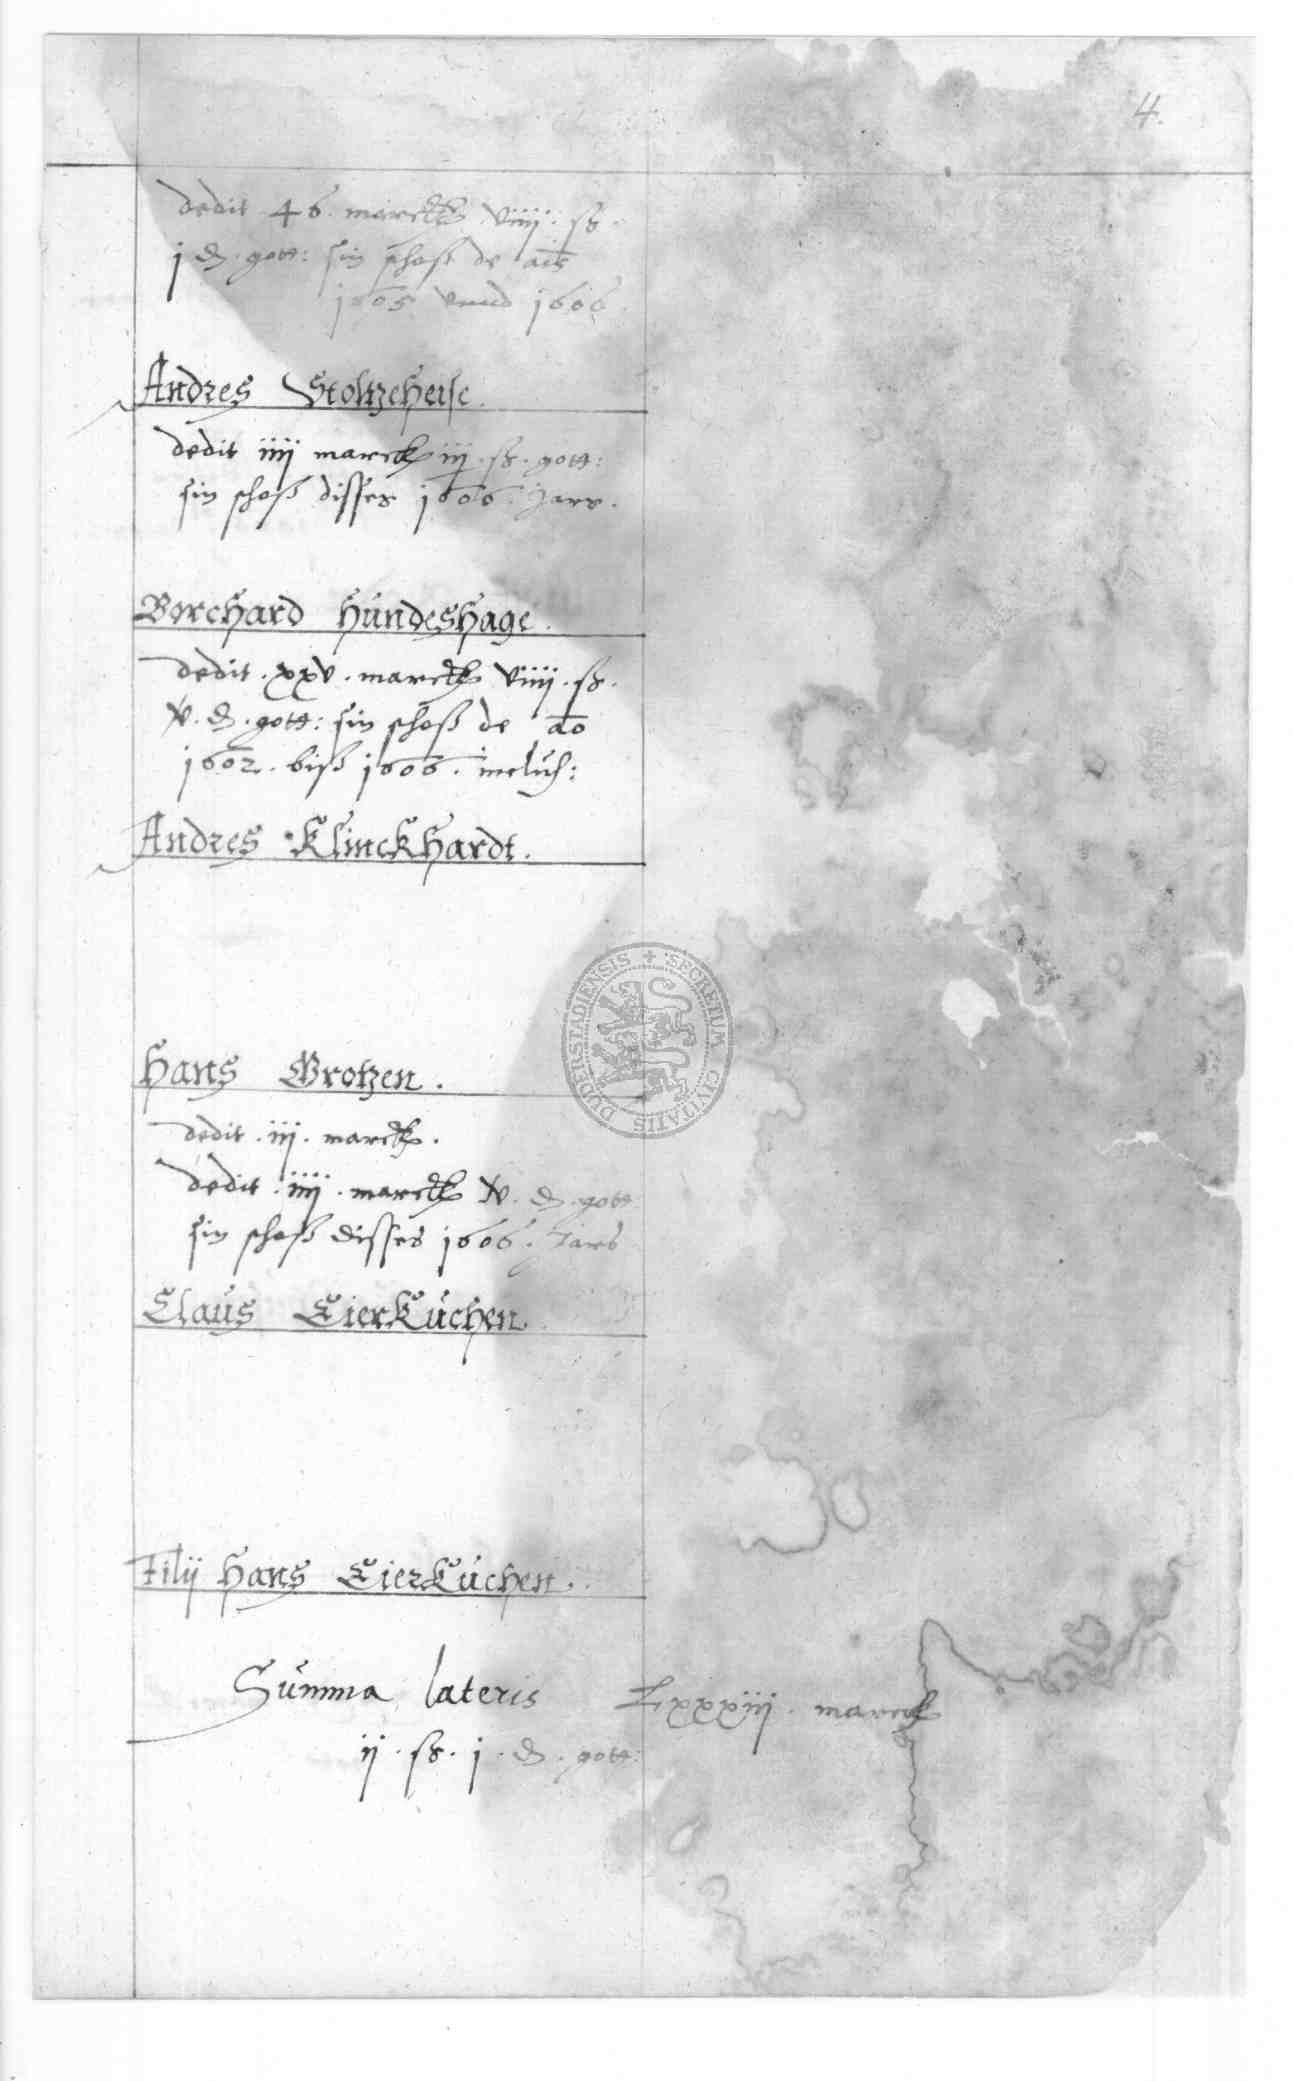 4.
dedit 46. marck viiij: ß.
j ₰. gott: sin schoß de ais
1605 vnnd 1606
Andres Stoltzeheise.
dedit iiij marck iij. ß. gott:
sin schoß disses 1606. Jars.
Borchard Hundeshage.
dedit. xxv. marck viiij. ß.
v. ₰. gott: sin schoß de ao
1602. biß 1606. inclus:
Andres Klinckhardt.
DUDERSTADIENSIS + SECRETUM CIVITATIS
Hans Grotzen.
dedit. iij. marck.
dedit. iiij. marck v. ₰. gott
sin schoß disses 1606. Jars
Claus Eierkuchen
Filij Hans Eierkuchen.
Summa lateris Lxxxiij. marck
ij. ß. j. ₰. gott: